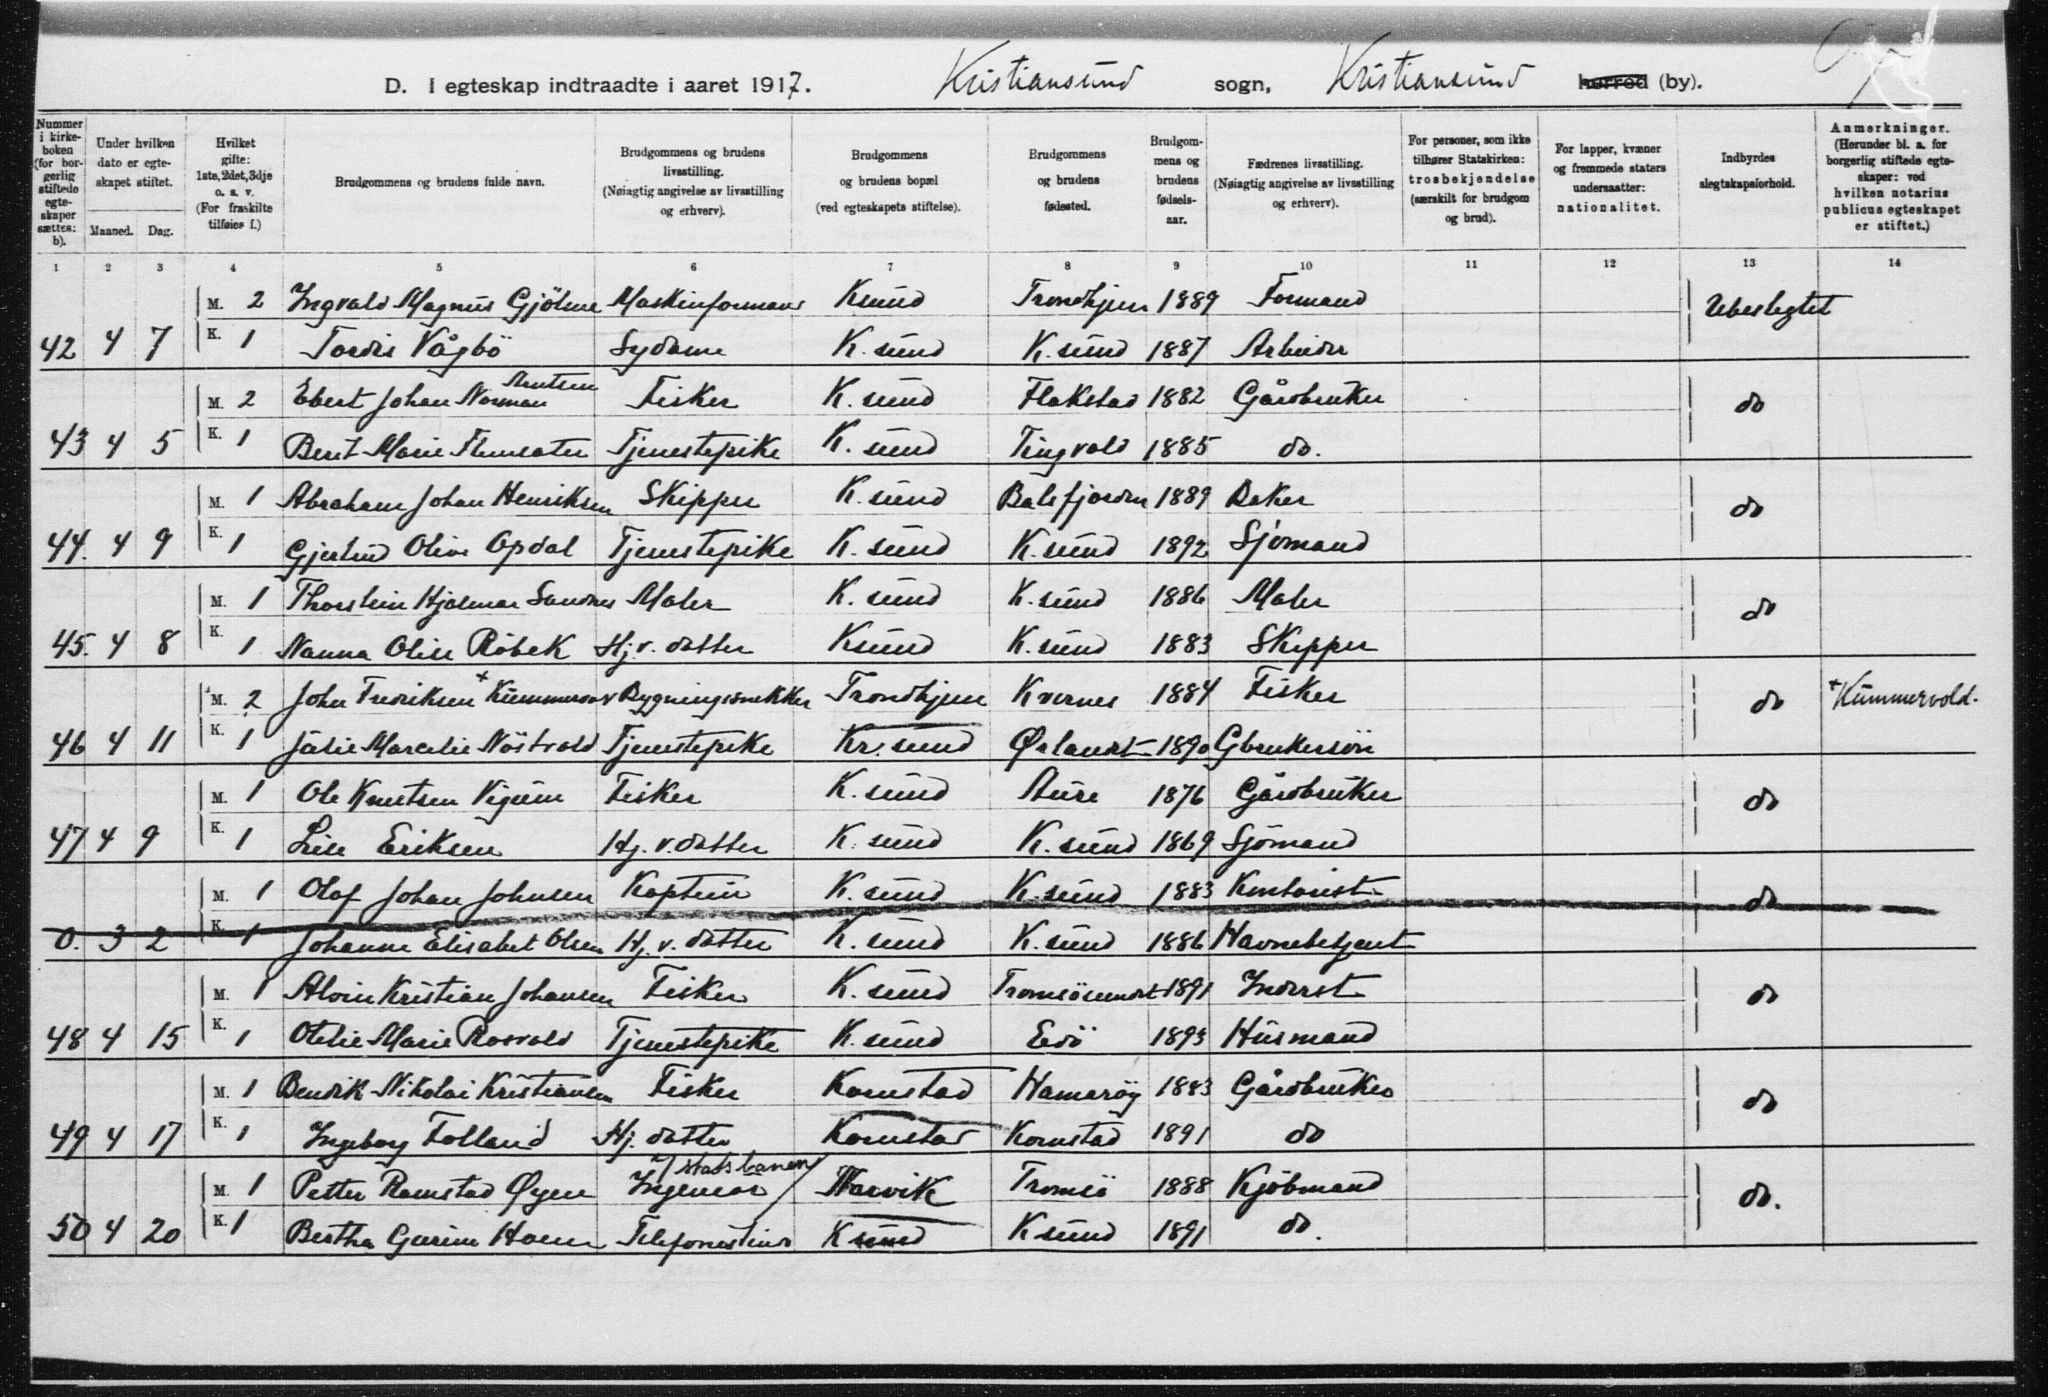 D. I egteskap indtraadte i aaret 1917. Kristiansund sogn, Kristiansund herred (by).
Nummer i kirkeboken (for borgerlig stiftede egteskaper sættes: b).
Under hvilken dato er egteskapet stiftet.
Maaned. Dag.
Hvilket gifte: 1ste, 2det, 3dje o. s. v. (For fraskilte tilføies f.)
Brudgommens og brudens fulde navn.
Brudgommens og brudens livsstilling. (Nøiagtig angivelse av livsstilling og erhverv).
Brudgommens og brudens bopæl (ved egteskapets stiftelse).
Brudgommens og brudens fødested.
Brudgommens og brudens fødselsaar.
Fædrenes livsstilling. (Nøiagtig angivelse av livsstilling og erhverv).
For personer, som ikke tilhører Statskirken: trosbekjendelse (særskilt for brudgom og brud).
For lapper, kvæner og fremmede staters undersaatter: nationalitet.
Indbyrdes slegtskapsforhold.
Anmerkninger. (Herunder bl. a. for borgerlig stiftede egteskaper: ved hvilken notarius publicus egteskapet er stiftet.)
1 2 3 4 5 6 7 8 9 10 11 12 13 14
M. 2 Ingvald Magnus Gjölme Maskinformand Ksund Trondhjem 1889 Formand Ubeslegtet
42 4 7 K. 1 Tordis Vågbö Sydame K. sund K. sund 1887 Arbeider
M. 2 Ebert Johan Norman Arntsen Fisker K. sund Flakstad 1882 Gårdbruker do
43 4 5 K. 1 Berit Marie Flemsæter Tjenestepike K. sund Tingvold 1885 do.
M. 1 Abraham Johan Henriksen Skipper K. sund Balsfjorden 1889 Baker do
44. 4 9 K. 1 Gjertine Olive Opdal Tjenestepike K. sund K. sund 1892 Sjömand
M. 1 Thorstein Hjalmar Sandnes Maler K. sund K. sund 1886 Maler do
45. 4 8 K. 1 Nanna Oline Röbek Hj. v. datter Ksund K. sund 1883 Skipper
M. 2 John Fredriksen + Kummervold Bygningssnekker Trondhjem Kvernes 1884 Fisker do + Kummervold.
46 4 11 K. 1 Julie Marcelie Nöstvold Tjenestepike Kr. sund Ørlandet 1890 Gbrukersön
M. 1 Ole Knutsen Vigum Fisker K. sund Aure 1876 Gårdbruker do
47 4 9 K. 1 Lise Eriksen Hj. v. datter K. sund K. sund 1869 Sjömand
M. 1 Olaf Johan Johnsen Kaptein K. sund K. sund 1883 Kontorist do
0. 3 2 K. 1 Johanne Elisabet Olsen Hj. v. datter K. sund K. sund 1886 Havnebetjent
M. 1 Alvin Kristian Johansen Fisker K. sund Tromsösundet 1891 Inderst do
48 4 15 K. 1 Otelie Marie Rosvold Tjenestepike K. sund Edö 1893 Husmand
M. 1 Bendik Nikolai Kristiansen Fisker Kornstad Hamaröy 1883 Gårdbruker do
49 4 17 K. 1 Ingeborg Folland Hj. datter Kornstad Kornstad 1891 do
M. 1 Petter Ramstad Øyen Ingeniør v/ statsbanen Narvik Tromsö 1888 Kjöbmand do.
50 4 20 K. 1 Bertha Gurine Holm Telefonistinde Ksund Ksund 1891 do.